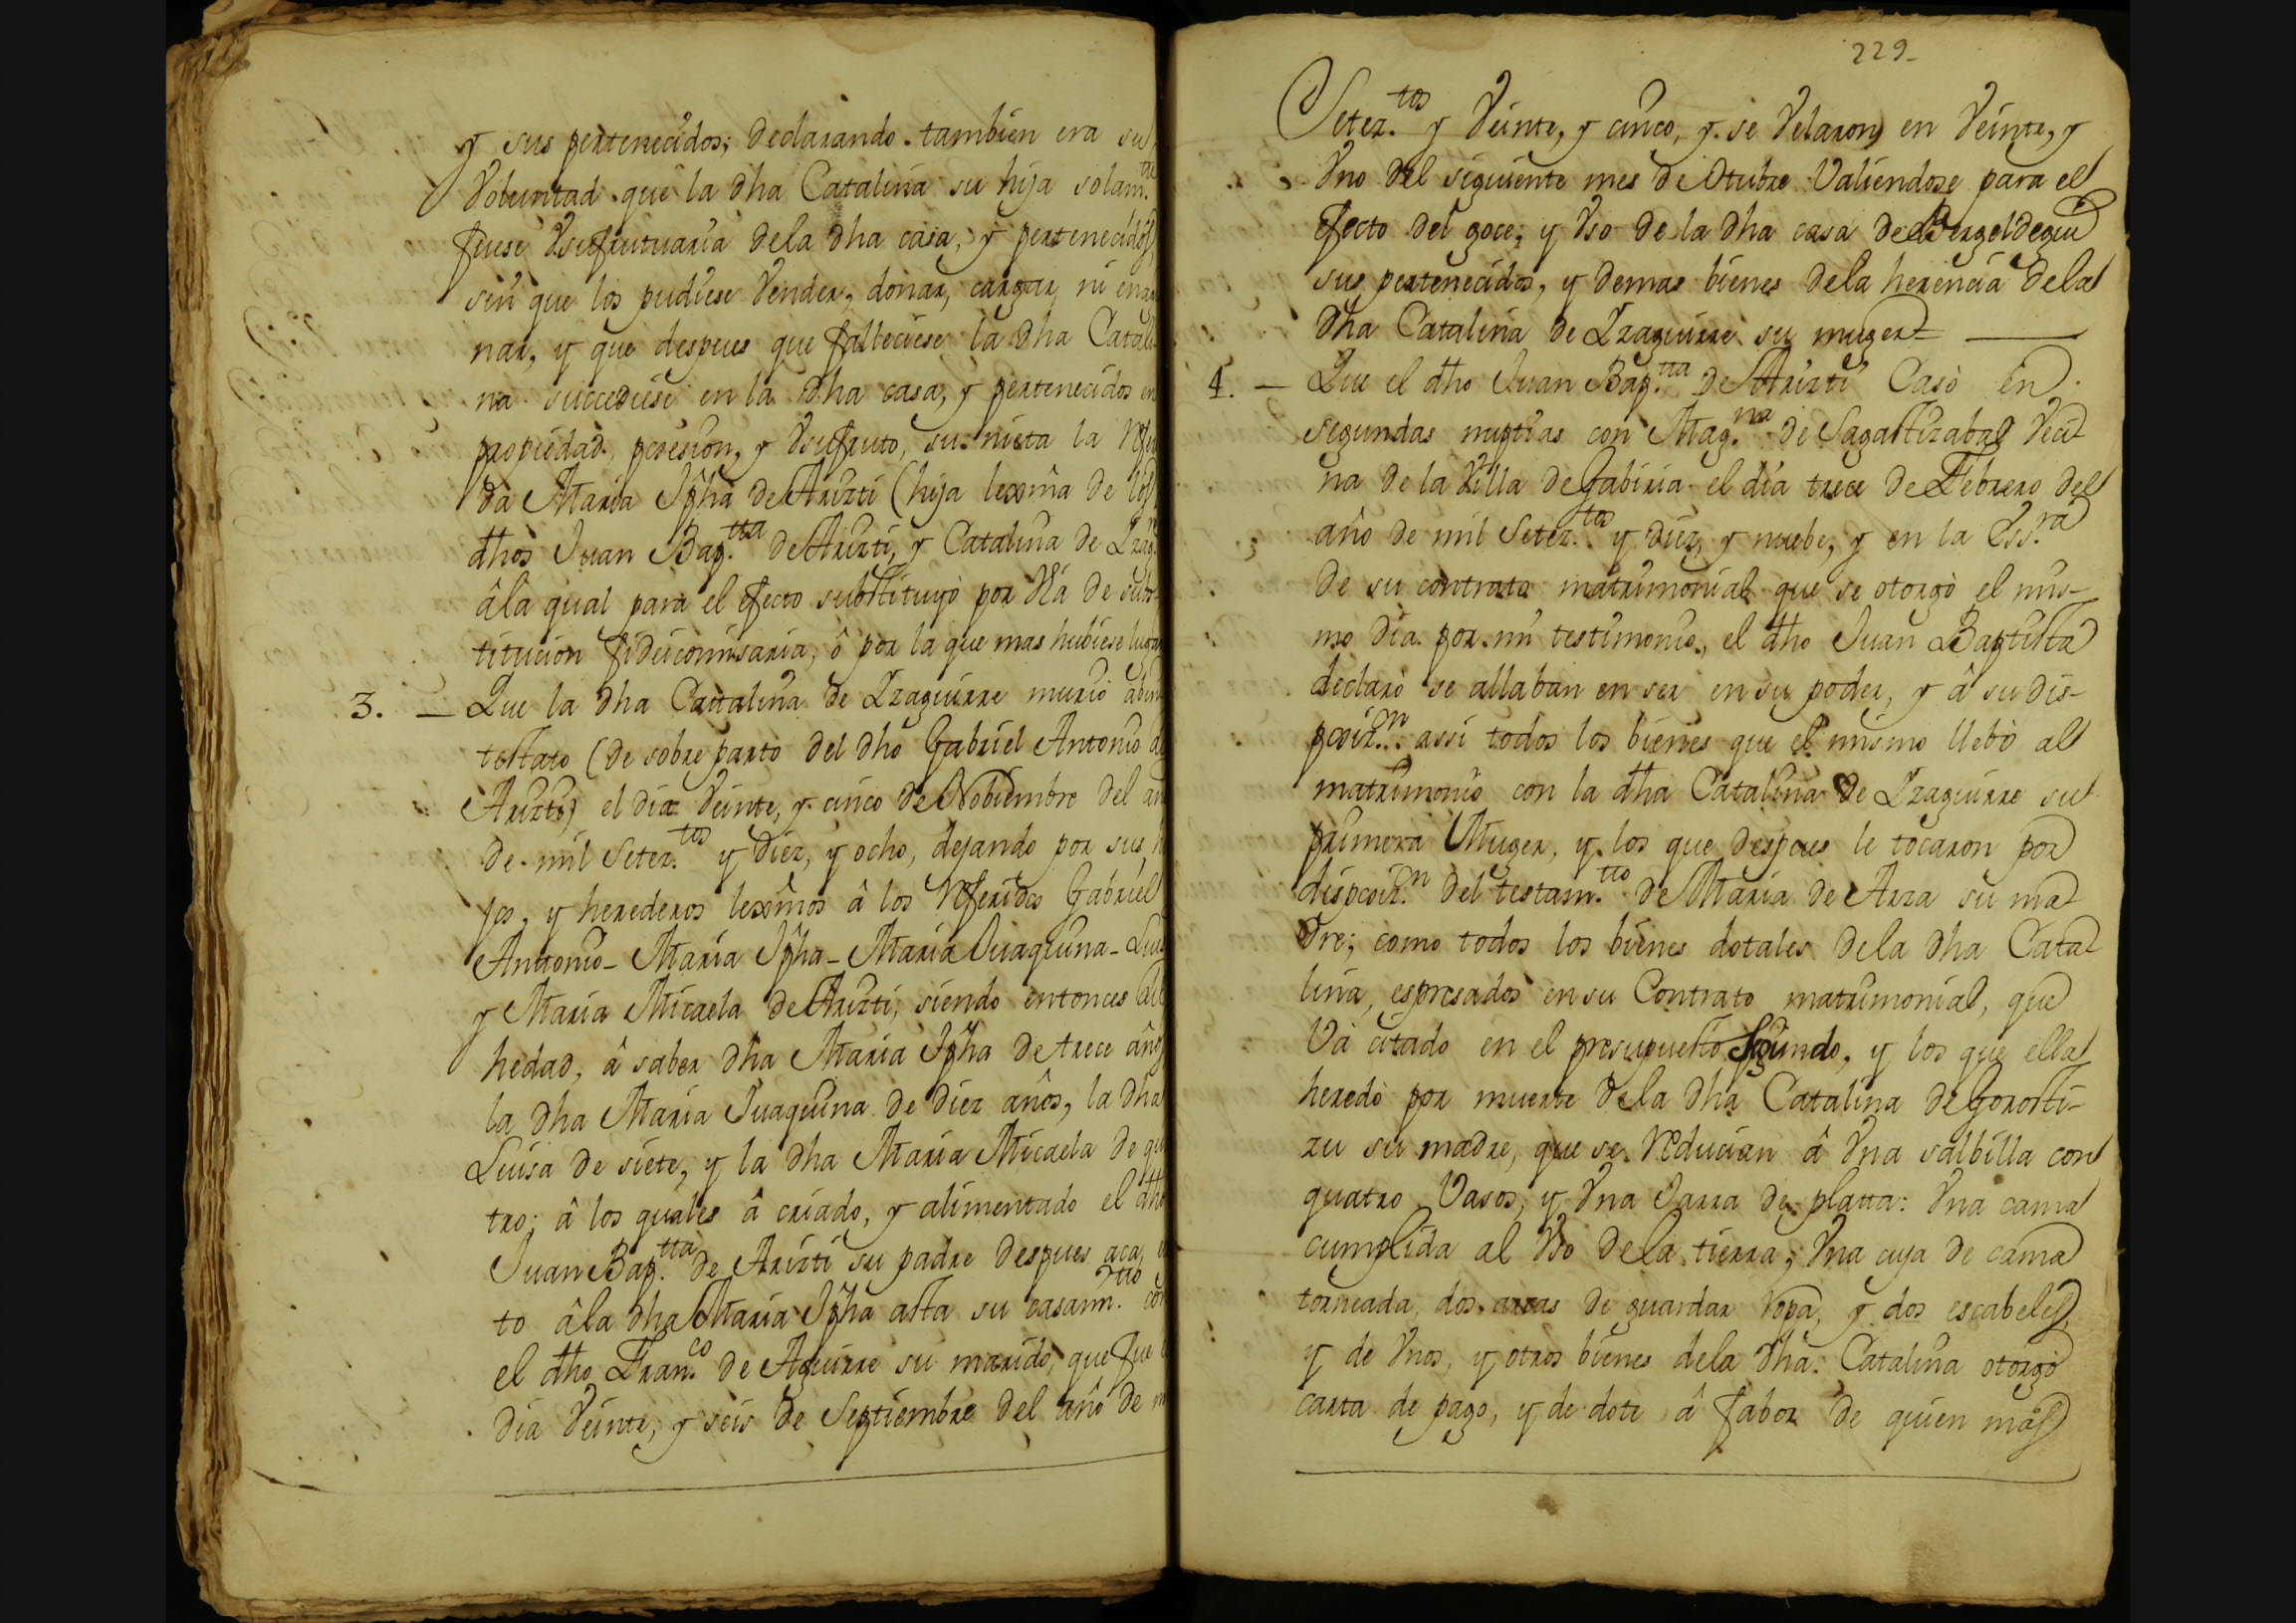 y sus pertenecidos; declarando tambien era su
Voluntad que la dha Catalina su hija solam.te
fuese Vsufrutuaria dela dha casa, y pertenecidos,
sin que los pudiese Vender, donar, cargar, ni enage
nar, y que despues que falleciese la dha Catali
na succediese en la dha casa, y pertenecidos en
propiedad, posesion, y Vsufruto, su nieta la Refer
da Maria Jpha de Arizti (hija lexma de los
dhos Juan Bap.tta de Arizti, y Catalina de Yzag.re
â la qual para el efecto substituyò por Via de subs
titucion fideicomisaria, ô por la que mas hubiese lugar
3. — Que la dha Cattalina de Yzaguirre muriò abin
testato (de sobreparto del dho Gabriel Antonio de
Arizti) el dia Veinte, y cinco de Nobiembre del añ
de mil Setez.tos y diez, y ocho, dejando por sus h
jos, y herederos lexmos â los Referidos Gabriel
Antonio - Maria Jpha - Maria Juaquina - Luis
y Maria Micaela de Arizti, siendo entonces de
hedad, â saber dha Maria Jpha de trece años
la dha Maria Juaquina de diez años, la dha
Luisa de siete, y la dha Maria Micaela de qua
tro; â los quales â criado, y alimentado el dho
Juan Bap.tta de Arizti su padre despues aca,
to â la dha Maria Jpha asta su casam.tto con
el dho Fran.co de Aguirre su marido, que fue
dia Veinte, y seis de Septiembre del año de m
229
Setez.tos y Veinte, y cinco, y se Velaron en Veinte, y
Vno del siguiente mes de Otubre Valiendose para el
efecto del goce, y Vso de la dha casa de Vergeldegui
sus pertenecidos, y demas bienes dela herencia dela
dha Catalina de Yzaguirre su muger =
4. — Que el dho Juan Bap.tta de Arizti Casò en
segundas nuptias con Mag.na de Sagastizabal Veci
na de la Villa de Gabiria el dia trece de Febrero del
año de mil Setez.tos y diez, y nuebe, y en la Ess.ra
de su contrato matrimonial que se otorgò el mis-
mo dia por mi testimonio, el dho Juan Baptista
declarò se allaban en ser en su poder, y â su dis-
posiz.n assi todos los bienes que el mismo llebò al
matrimonio con la dha Catalina de Yzaguirre su
primera Muger, y los que despues le tocaron por
disposiz.n del testam.tto de Maria de Arza su ma
dre; como todos los bienes dotales dela dha Cata
lina, espresados en su Contrato matrimonial, que
Và citado en el presupuesto Segundo, y los que ella
heredò por muerte dela dha Catalina de Gorosti-
zu su madre, que se Reducian â Vna salbilla con
quatro Vasos, y Vna Jarra de platta: Vna cama
cumplida al Vso dela tierra; Vna cuja de cama
torneada, dos arcas de guardar Ropa, y dos escabeles,
y de Vnos, y otros bienes dela dha Catalina otorgò
carta de pago, y de dote â fabor de quien mas